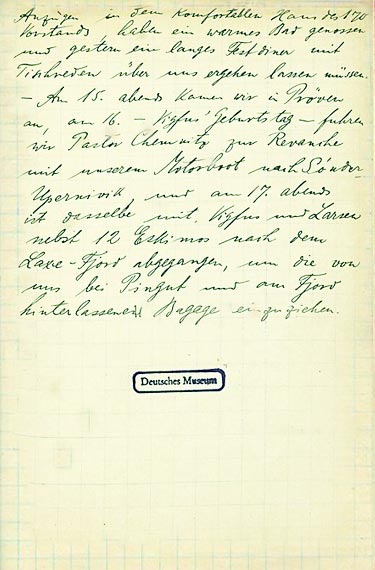 Anzügen in dem komfortablen Haus des
Vorstands, haben ein warmes Bad genossen
und gestern ein langes Festdiner mit
Tischreden über uns ergehen lassen müssen.
– Am 15. abends kamen wir in Pröven
an, am 16. – Vigfus' Geburtstag – fuhren
wir Pastor Chemnitz zur Revanche
mit unserem Motorboot nach Sönder-
Upernivik, und am 17. abends
ist dasselbe mit Vigfus und Larsen
nebst 12 Eskimos nach dem
Laxe-Fjord abgegangen, um die von
uns bei Pingut und am Fjord
hinterlassene Bagage einzuziehen.
Deutsches Museum